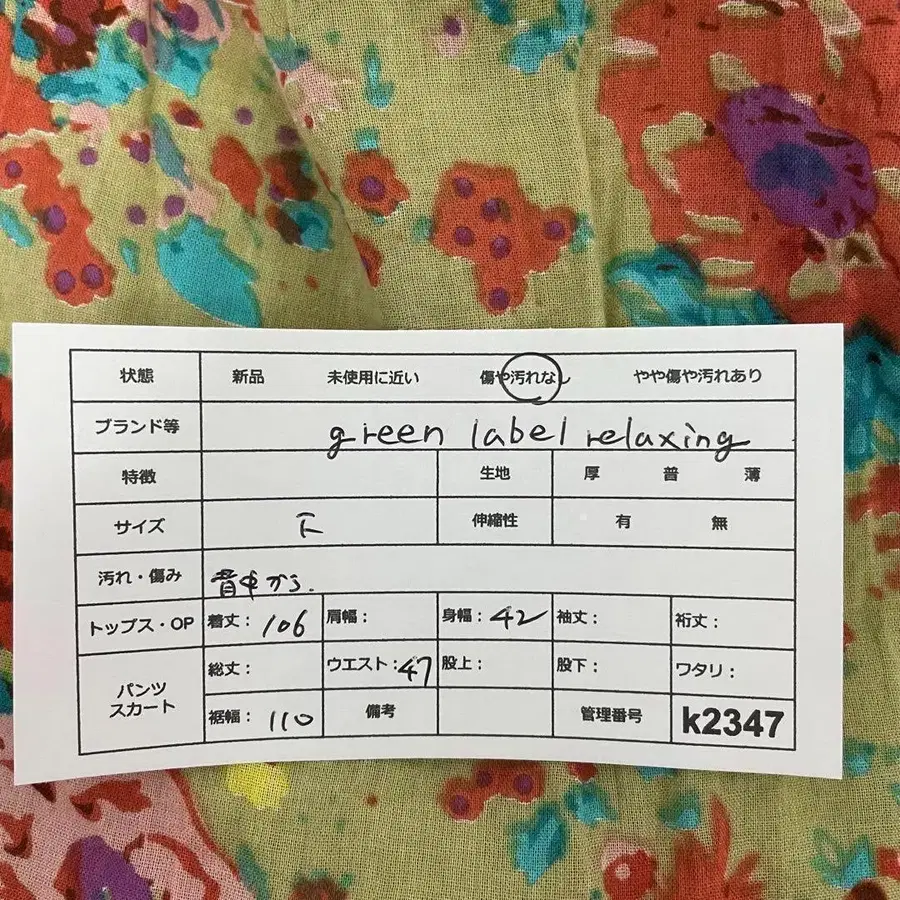 状態 新品 未使用に近い 傷や汚れなし やや傷や汚れあり
ブランド等 green label relaxing
特徴 生地 厚 普 薄
サイズ F 伸縮性 有 無
汚れ・傷み 背中から.
トップス・OP 着丈: 106 肩幅: 身幅: 42 袖丈: 裄丈:
パンツ スカート 総丈: ウエスト: 47 股上: 股下: ワタリ:
裾幅: 110 備考 管理番号 k2347